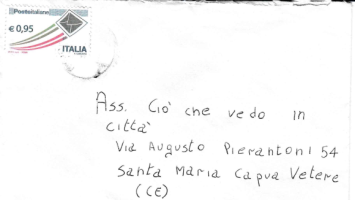 Posteitaliane
€ 0,95
ITALIA
Ass. Ciò che vedo in
città
Via Augusto Pierantoni 54
Santa Maria Capua Vetere
(CE)